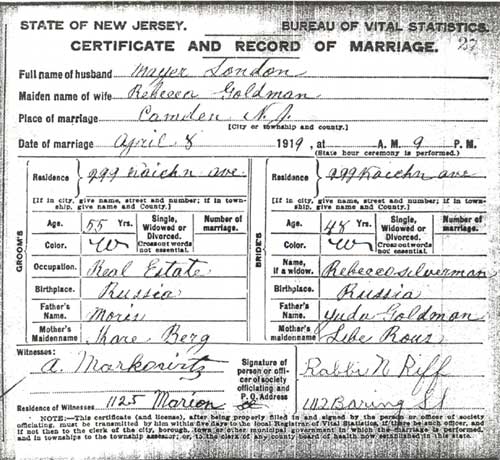 STATE OF NEW JERSEY. BUREAU OF VITAL STATISTICS.
CERTIFICATE AND RECORD OF MARRIAGE. 27
Full name of husband Mayer London
Maiden name of wife Rebecca Goldman
Place of marriage Camden N.J.
[City or township and county.]
Date of marriage April 8 1919, at A. M. 9 P. M.
(State hour ceremony is performed.)
GROOM'S
Residence 999 Kaichn ave.
[If in city, give name, street and number; if in township, give name and County.]
Age. 55 Yrs. Single, Widowed or Divorced. Number of marriage.
Color. W Cross out words not essential.
Occupation. Real Estate
Birthplace. Russia
Father's Name. Moris
Mother's Maiden name. Berg
BRIDE'S
Residence 999 Kaichn ave
[If in city, give name, street and number; if in township, give name and County.]
Age. 48 Yrs. Single, Widowed or Divorced. Number of marriage.
Color. W Cross out words not essential.
Name, if a widow. Rebecca Silverman
Birthplace. Russia
Father's Name. Yuda Goldman
Mother's maiden name Libe
Witnesses:
A. Markovitz
Residence of Witnesses 1125 Marion St
Signature of person or officer of society officiating and P. O. Address
Rabbi N Riff
Baring St
NOTE:—This certificate (and license), after being properly filled in and signed by the person or officer of society
officiating, must be transmitted by him within five days to the local Registrar of Vital Statistics, if there be such officer, and
if not then to the clerk of the city, borough, town or other municipal government in which the marriage is performed,
and in townships to the township assessor; or, to the clerk of any county board of health now established in this state.